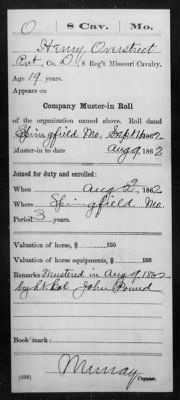 O | 8 Cav. | Mo.
Henry Overstreet
Pvt., Co. D, 8 Reg't Missouri Cavalry.
Age 19 years.
Appears on
Company Muster-in Roll
of the organization named above. Roll dated
Springfield Mo, Sept 1, 1862
Muster-in to date Aug 9, 1862
Joined for duty and enrolled:
When Aug 2, 1862
Where Springfield Mo.
Period 3 years.
Valuation of horse, $ 100
Valuation of horse equipments, $ 100
Remarks Mustered in Aug 9 1862
by Lt. Col. John
Book mark:
Murray
(356) Copyist.